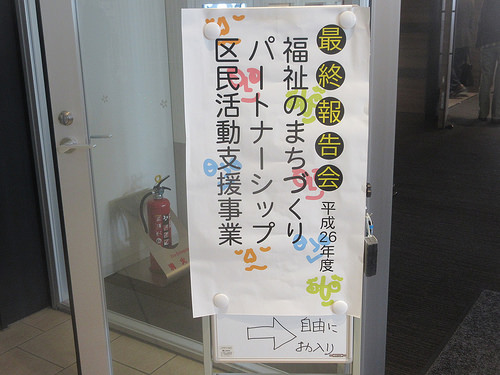 最終報告会 平成26年度
福祉のまちづくり
パートナーシップ
区民活動支援事業
自由に
お入り